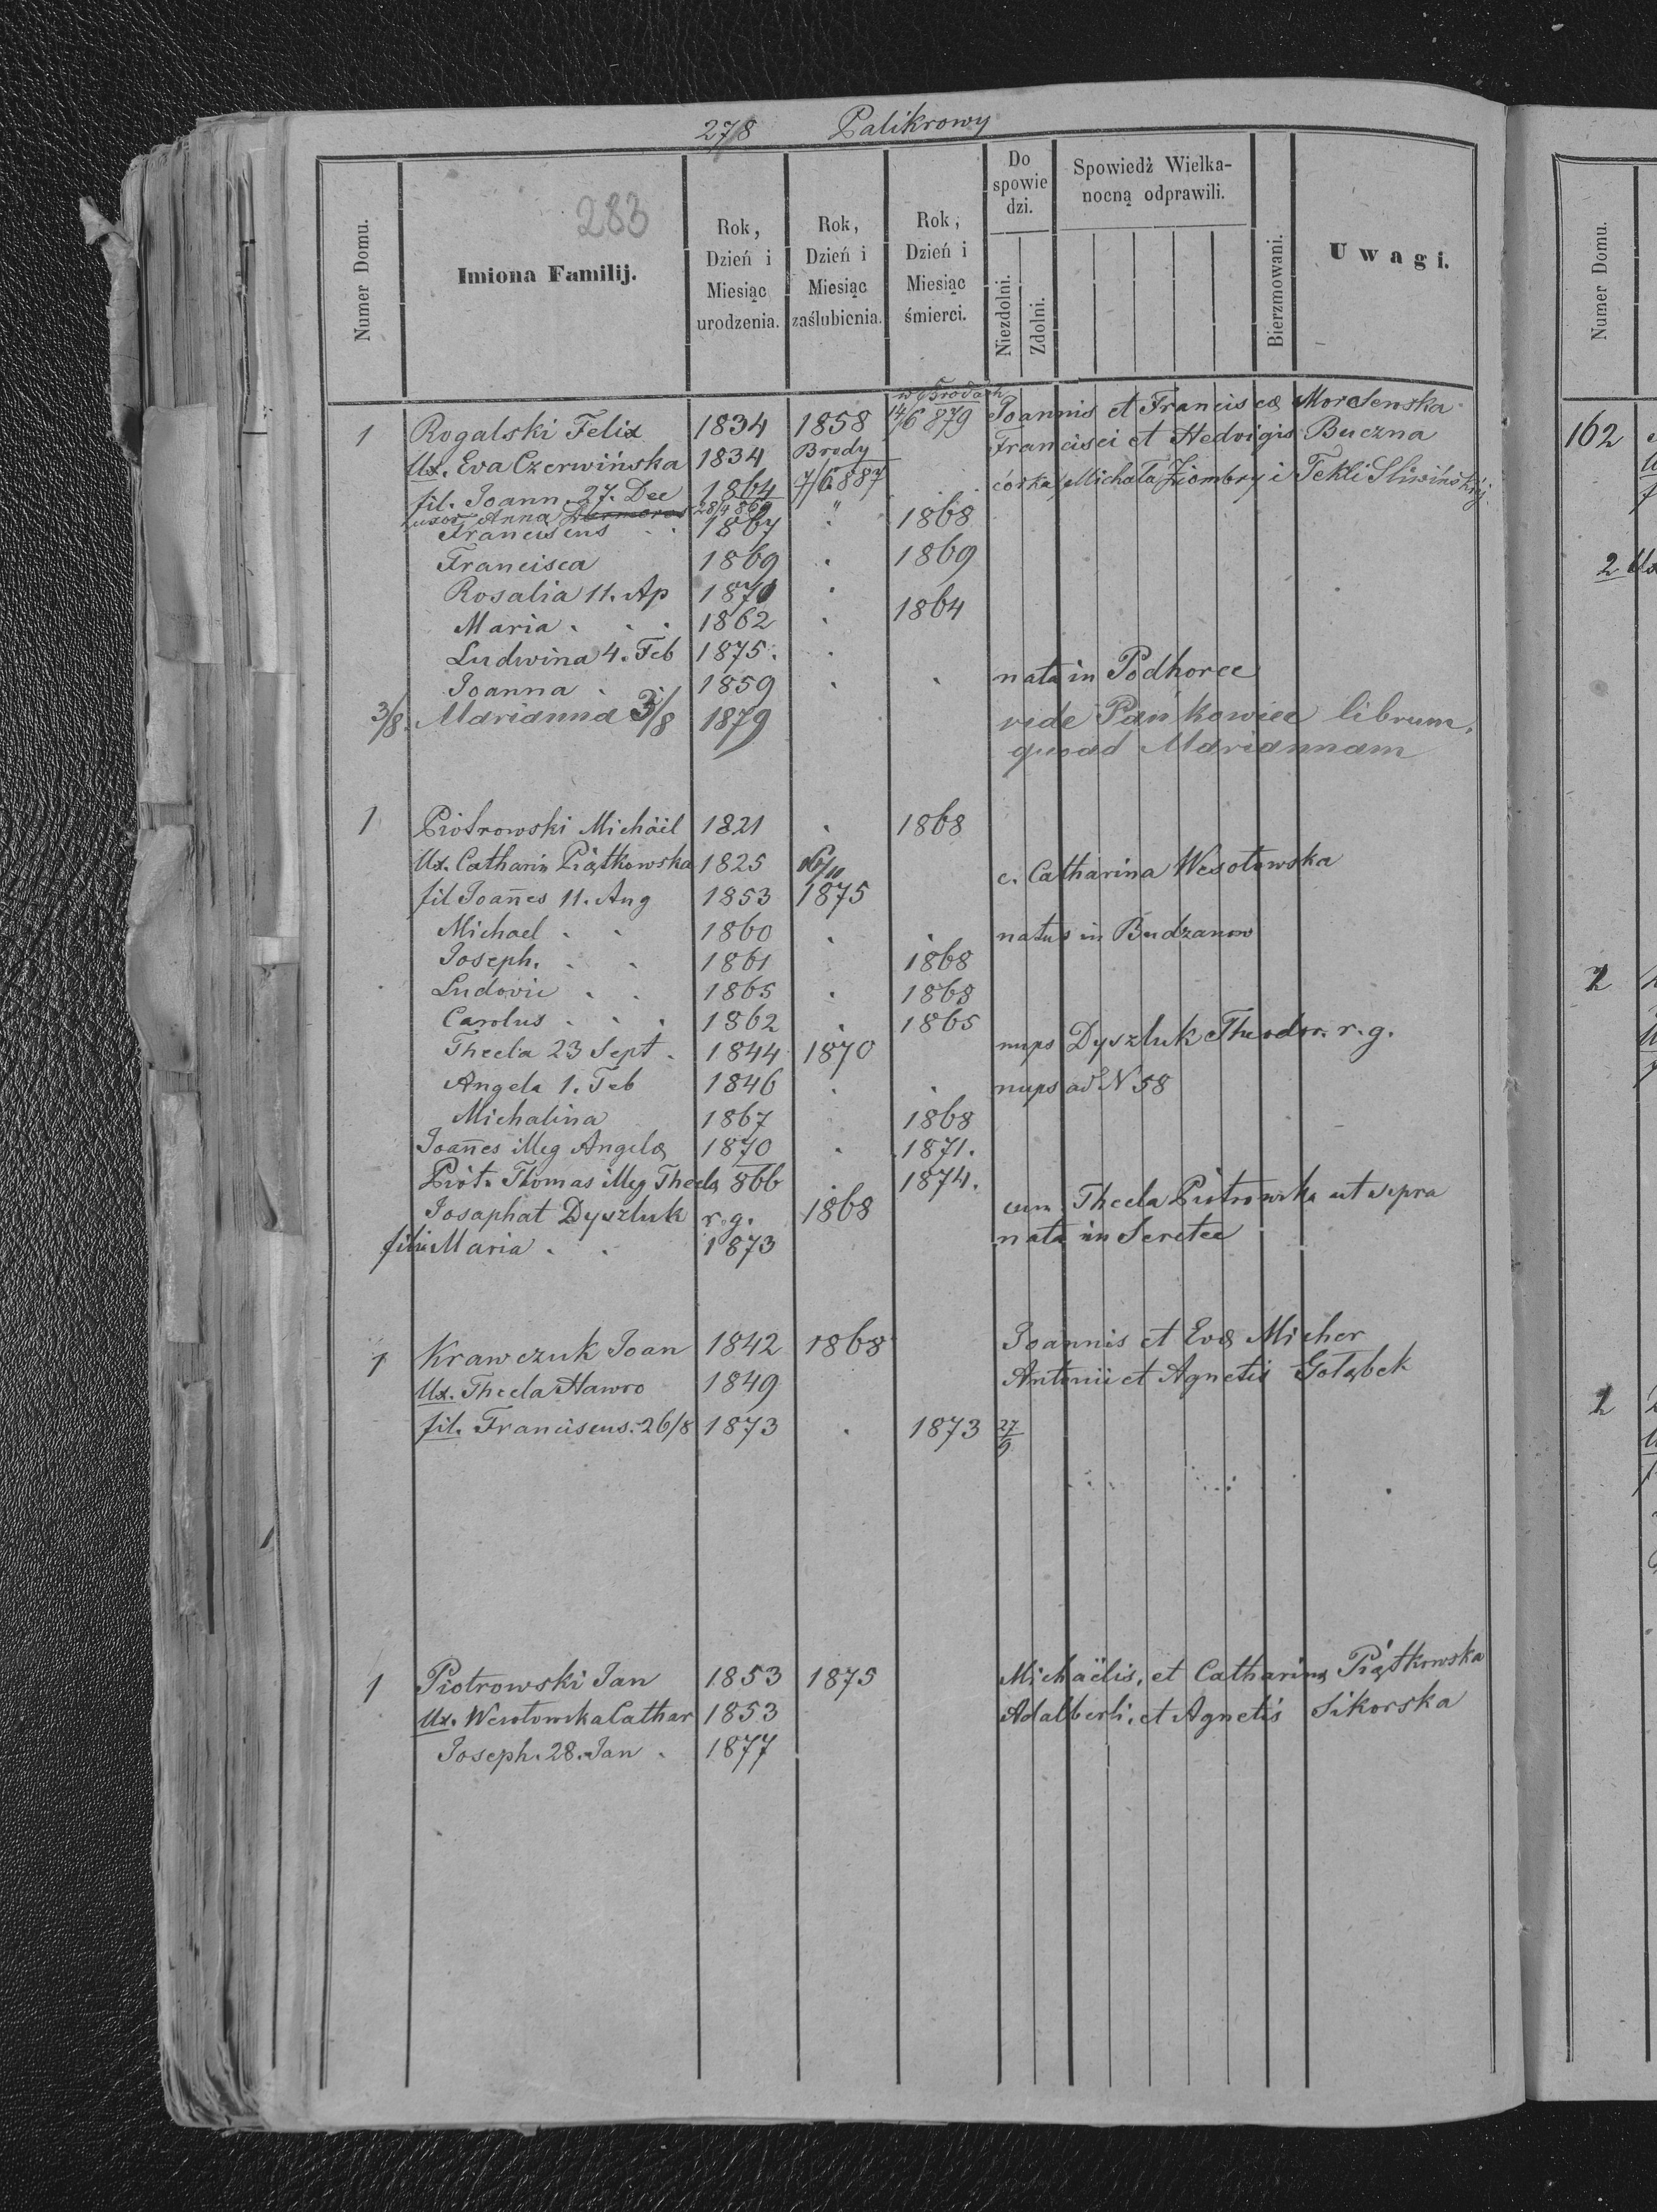 278 Palikrowy
283
Numer Domu.
Imiona Familij.
Rok, Dzień i Miesiąc urodzenia.
Rok, Dzień i Miesiąc zaślubienia.
Rok, Dzień i Miesiąc śmierci.
Do spowiedzi.
Niezdolni.
Zdolni.
Spowiedź Wielkanocną odprawili.
Bierzmowani.
Uwagi.
w Brodach
1 Rogalski Felix 1834 1858 14/6 879 Joannis et Franciscæ
Ux. Eva Czerwińska 1834 Brody Francisci et Hedvigis Buczna
fil. Joann. 27. Dec 1864 7/6 887 córka Michała Ziombry i Tekli Sliwińskiej
uxor Anna 28/4 869 "
Franciscus 1867 1868
Francisca 1869 1869
Rosalia 11. Ap 1870
Maria 1862 1864
Ludwina 4. Feb 1875.
Joanna 1859 nata in Podhorce
3/8. Marianna 3/8 1879 vide Pańkowiec librum,
quoad Mariannam
1 Piotrowski Michäil 1821 1868
Ux. Catharin Piątkowska 1825 16/10
fil Joan̄es 11. Aug 1853 1875 c. Catharina Wesołowska
Michael 1860 natus in Budzanow
Joseph. 1861 1868
Ludovic 1865 1868
Carolus 1862 1865
Thecla 23 Sept. 1844 1870 nups Dyszluk Theodor. r. g.
Angela 1. Feb 1846 nups ad N 58
Michalina 1867 1868
Joan̄es illeg Angelæ 1870 1871.
Piot. Thomas illeg Theclæ 866 1874.
Josaphat Dyszluk r. g. 1868 cum Thecla Piotrowska ut supra
filia Maria 1873 nata in Seretec
1 Krawczuk Joan 1842 1868 Joannis et Evæ Micher
Ux. Thecla Hawro 1849 Antonii et Agnetis Gołąbek
fil. Franciscus. 26/8 1873 1873 27/9
1 Piotrowski Jan 1853 1875 Michaëlis, et Catharinæ Piątkowska
Ux. Wesołowska Cathar 1853 Adalberti, et Agnetis Sikorska
Joseph. 28. Jan 1877
Numer Domu.
162
2 Ux
2
1